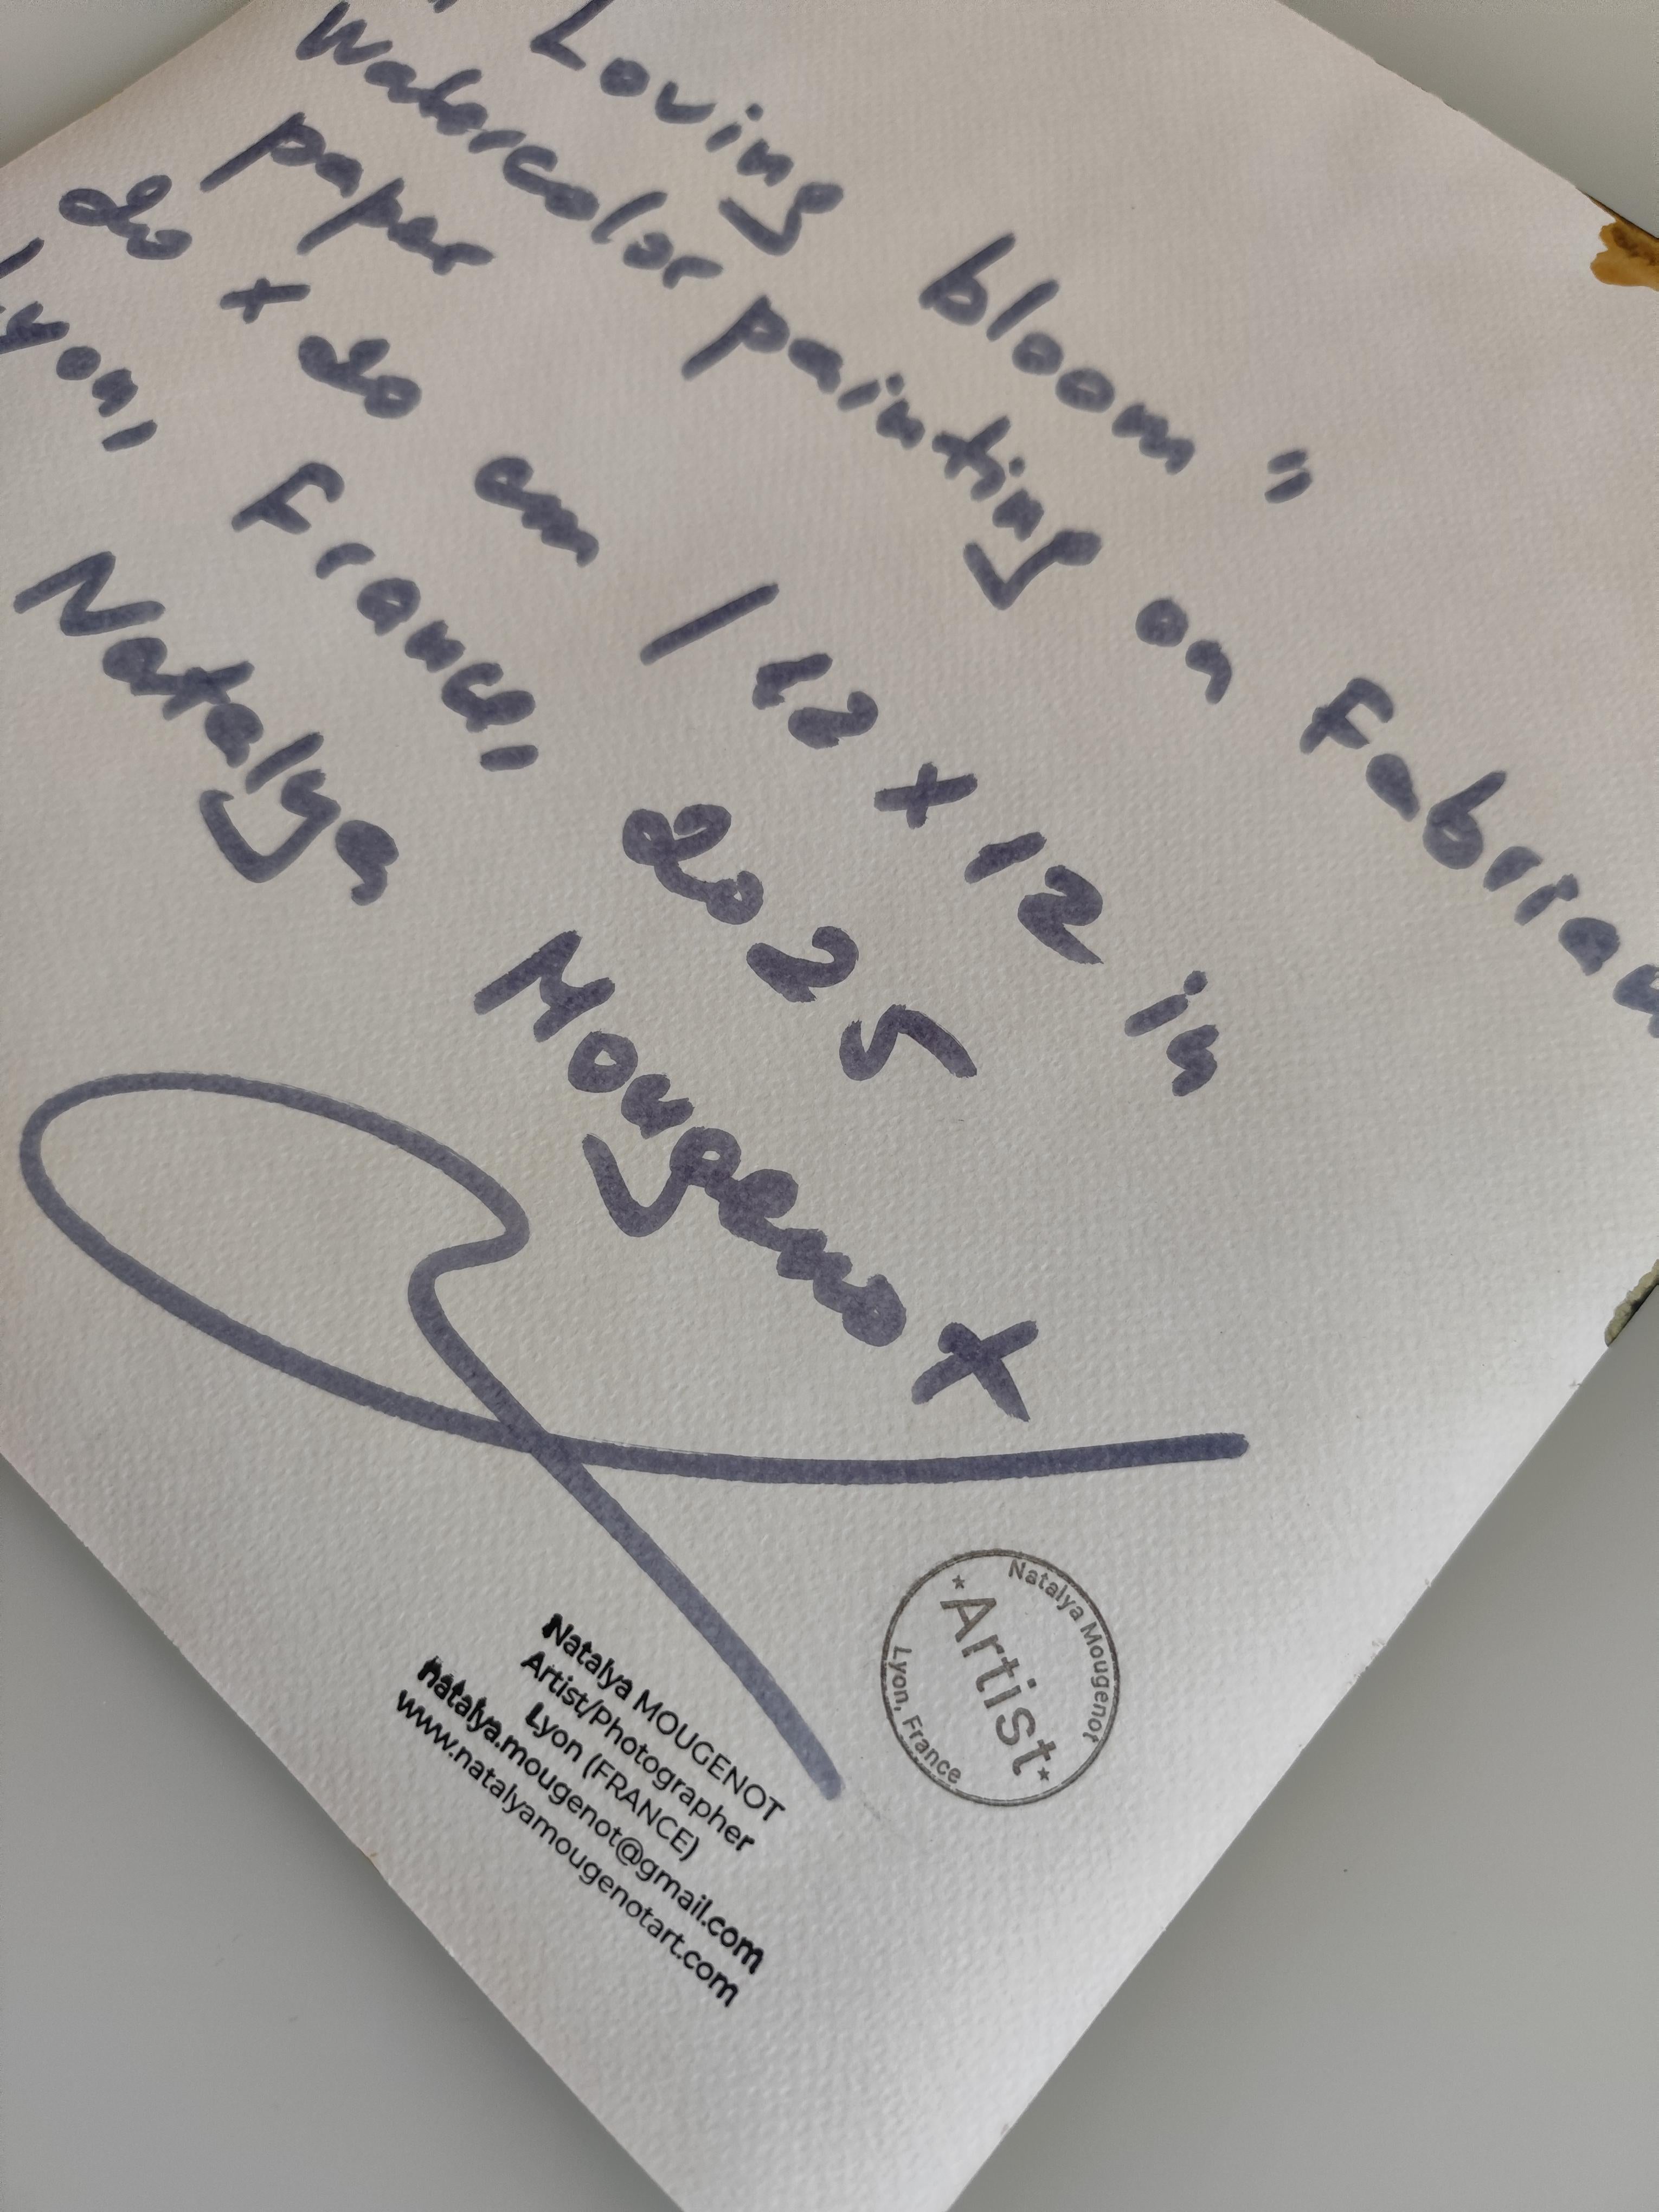 " Loving bloom "
Watercolor painting on Fabrian
paper
20 x 20 cm | 12 x 12 in
Lyon, France, 2025
Natalya Mougenot
Natalya MOUGENOT
Artist/Photographer
Lyon (FRANCE)
natalya.mougenot@gmail.com
www.natalyamougenotart.com
Natalya Mougenot
Artist
Lyon, France